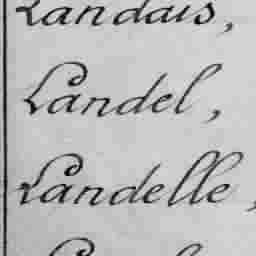 Landais,
Landel,
Landelle,